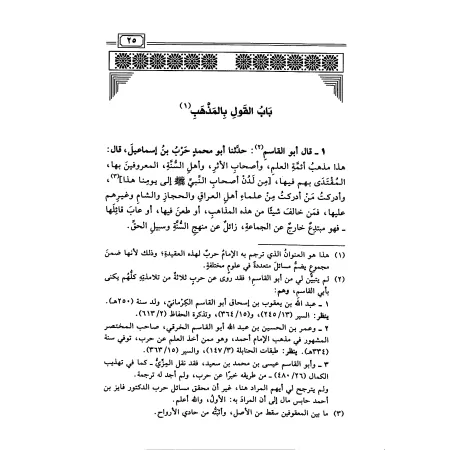 ٢٥
بَابُ القَولِ بِالمَذْهَبِ(١)
١ ـ قال أبو القاسم(٢): حدثنا أبو محمدٍ حَرْبُ بنُ إسماعيلَ، قال:
هذا مذهبُ أئمَّةِ العلمِ، وأصحابِ الأثَرِ، وأهلِ السُّنَّةِ، المعروفينَ بها،
المُقْتَدَى بهم فيها، [مِن لَدُنْ أصحابِ النَّبيِّ ﷺ إلى يومِنا هذا](٣)،
وأدركتُ مَنْ أدركتُ مِنْ علماءِ أهلِ العراقِ والحجازِ والشامِ وغيرِهم
عليها، فمَن خالفَ شيئًا من هذه المذاهبِ، أو طعنَ فيها، أو عابَ قائِلَها
ـ فهو مبتدِعٌ خارجٌ عن الجماعةِ، زائلٌ عن منهجِ السُّنَّةِ وسبيلِ الحقِّ.
(١) هذا هو العنوانُ الذي ترجم به الإمامُ حربٌ لهذه العقيدةِ؛ وذلك لأنها ضمنَ
مجموعٍ يضمُّ مسائلَ متعددةً في علومٍ مختلفةٍ.
(٢) لم يتبيَّن لي من أبو القاسم؛ فقد روى عن حربٍ ثلاثةٌ من تلامذتِهِ كلُّهم يكنى
بأبي القاسمِ، وهم:
١ ـ عبد الله بن يعقوب بن إسحاق أبو القاسم الكِرْمانيُّ، ولد سنة (٢٥٠هـ).
ينظر: السير (٢٤٥/١٣)، و(٣٦٤/١٥)، وتذكرة الحفاظ (٦١٣/٢).
٢ ـ وعمر بن الحسين بن عبد الله أبو القاسم الخرقي، صاحب المختصر
المشهور في مذهب الإمام أحمد، وهو ممن أخذ العلم عن حرب، توفي سنة
(٣٣٤هـ). ينظر: طبقات الحنابلة (١٤٧/٣)، والسير (٣٦٣/١٥).
٣ ـ وأبو القاسم عيسى بن محمد بن سعيد، فقد نقل المِزِّيُّ ـ كما في تهذيب
الكمال (٤٨٠/٢٦) ـ من طريقه خبرًا عن حرب، ولم أجد له ترجمة.
ولم يترجح لي أيهم المراد هنا، غير أن محقق مسائل حرب الدكتور فايز بن
أحمد حابس مال إلى أن المرادَ به: الأولُ، والله أعلم.
(٣) ما بين المعقوفين سقط من الأصل، وأثبتُّه من حادي الأرواح.